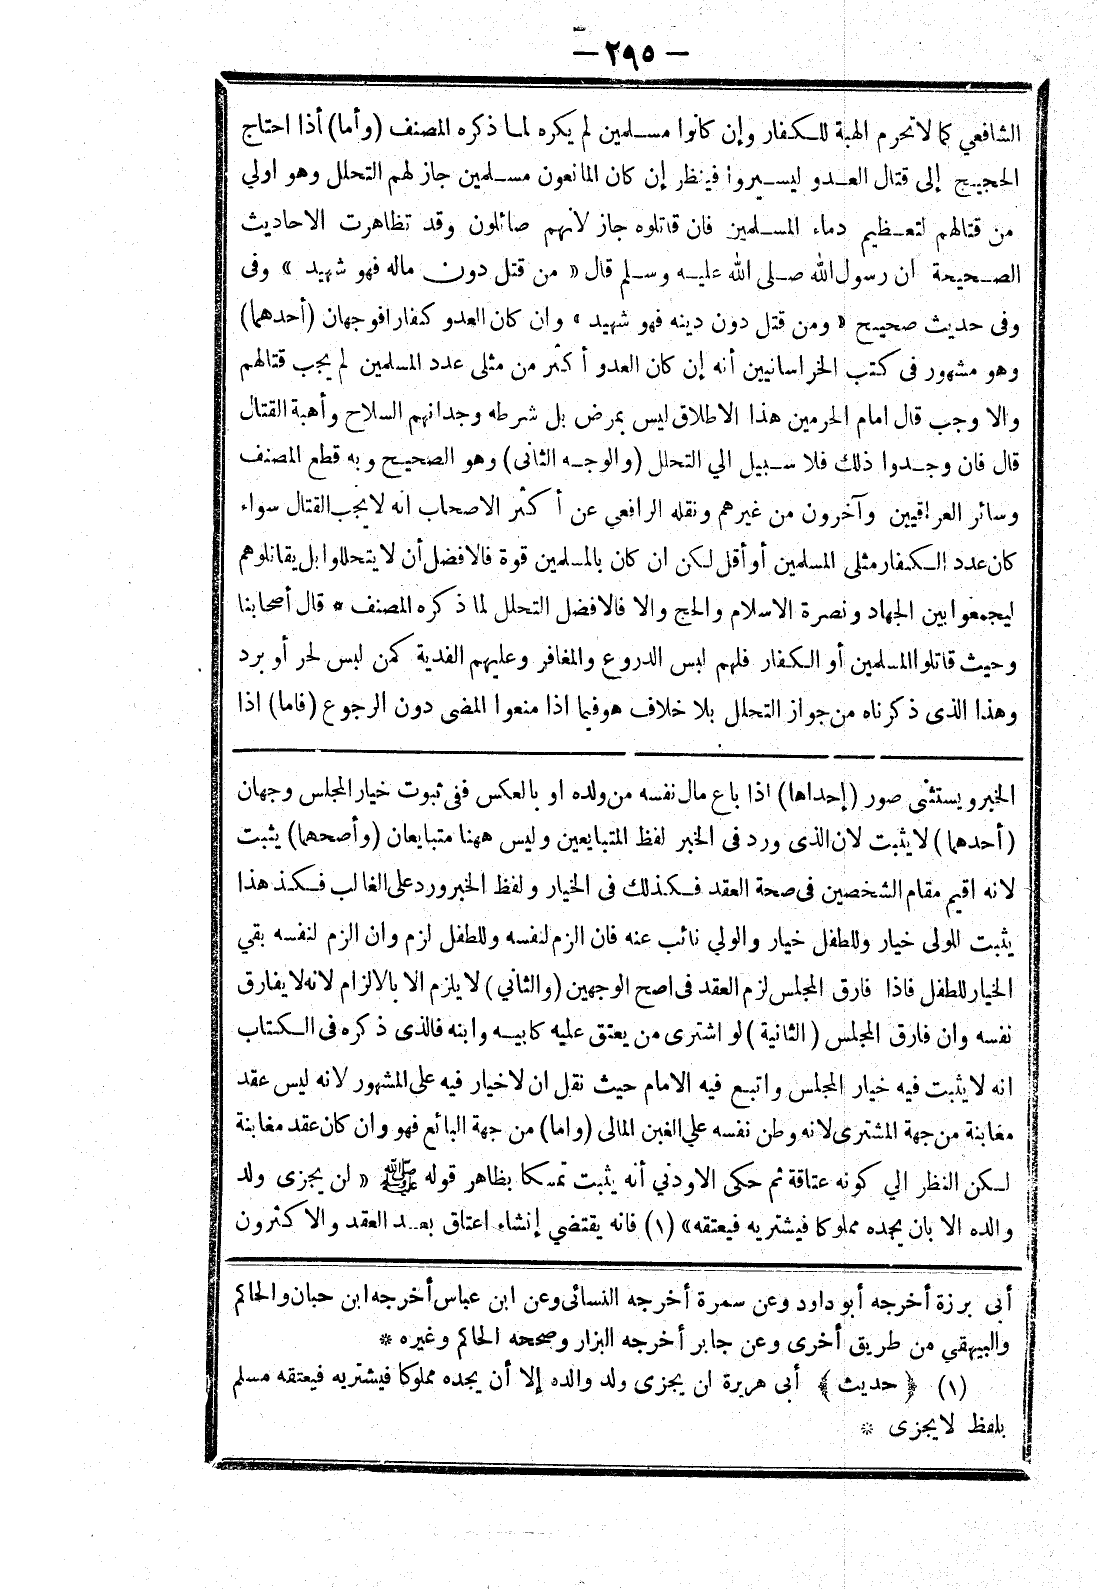 — ٢٩٥ —
الشافعي كما لا تحرم الهبة للكفار وإن كانوا مسلمين لم يكره لما ذكره المصنف (وأما) أذا احتاج
الحجيج إلى قتال العدو ليسيروا فينظر إن كان المانعون مسلمين جاز لهم التحلل وهو اولي
من قتالهم لتعظيم دماء المسلمين فان قاتلوه جاز لأنهم صائلون وقد تظاهرت الاحاديث
الصحيحة ان رسول الله صلى الله عليه وسلم قال « من قتل دون ماله فهو شهيد » وفى
وفى حديث صحيح « ومن قتل دون دينه فهو شهيد » وان كان العدو كفارا فوجهان (أحدهما)
وهو مشهور فى كتب الخراسانيين أنه إن كان العدو أكثر من مثلى عدد المسلمين لم يجب قتالهم
والا وجب قال امام الحرمين هذا الاطلاق ليس بمرض بل شرطه وجدانهم السلاح وأهبة القتال
قال فان وجدوا ذلك فلا سبيل الي التحلل (والوجه الثانى) وهو الصحيح وبه قطع المصنف
وسائر العراقيين وآخرون من غيرهم ونقله الرافعي عن أكثر الاصحاب انه لا يجب القتال سواء
كان عدد الكفار مثلى المسلمين أو أقل لكن ان كان بالمسلمين قوة فالافضل أن لا يتحللوا بل يقاتلوهم
ليجمعوا بين الجهاد ونصرة الاسلام والحج والا فالافضل التحلل لما ذكره المصنف * قال أصحابنا
وحيث قاتلوا المسلمين أو الكفار فلهم لبس الدروع والمغافر وعليهم الفدية كمن لبس لحر أو برد
وهذا الذى ذكرناه من جواز التحلل بلا خلاف هو فيما اذا منعوا المضى دون الرجوع (فاما) اذا
الخبر ويستثنى صور (إحداها) اذا باع مال نفسه من ولده او بالعكس ففى ثبوت خيار المجلس وجهان
(أحدهما) لا يثبت لان الذى ورد فى الخبر لفظ المتبايعين وليس ههنا متبايعان (وأصحهما) يثبت
لانه اقيم مقام الشخصين فى صحة العقد فكذلك فى الخيار ولفظ الخبر ورد على الغالب فكذ هذا
يثبت للولى خيار وللطفل خيار والولي نائب عنه فان الزم لنفسه وللطفل لزم وان الزم لنفسه بقي
الخيار للطفل فاذا فارق المجلس لزم العقد فى اصح الوجهين (والثاني) لا يلزم الا بالالزام لانه لا يفارق
نفسه وان فارق المجلس (الثانية) لو اشترى من يعتق عليه كابيه وابنه فالذى ذكره فى الكتاب
انه لا يثبت فيه خيار المجلس واتبع فيه الامام حيث نقل ان لاخيار فيه على المشهور لانه ليس عقد
مغابنة من جهة المشترى لانه وطن نفسه علي الغبن المالى (واما) من جهة البائع فهو وان كان عقد مغابنة
لكن النظر الي كونه عتاقة ثم حكى الاودني أنه يثبت تمسكا بظاهر قوله ﷺ « لن يجزى ولد
والده الا بان يجده مملوكا فيشتريه فيعتقه» (١) فانه يقتضي إنشاء اعتاق بعد العقد والاكثرون
أبى برزة أخرجه أبو داود وعن سمرة أخرجه النسائى وعن ابن عباس أخرجه ابن حبان والحاكم
والبيهقي من طريق أخرى وعن جابر أخرجه البزار وصححه الحاكم وغيره *
(١) ﴿ حديث ﴾ أبى هريرة لن يجزى ولد والده إلا أن يجده مملوكا فيشتريه فيعتقه مسلم
بلفظ لا يجزى *